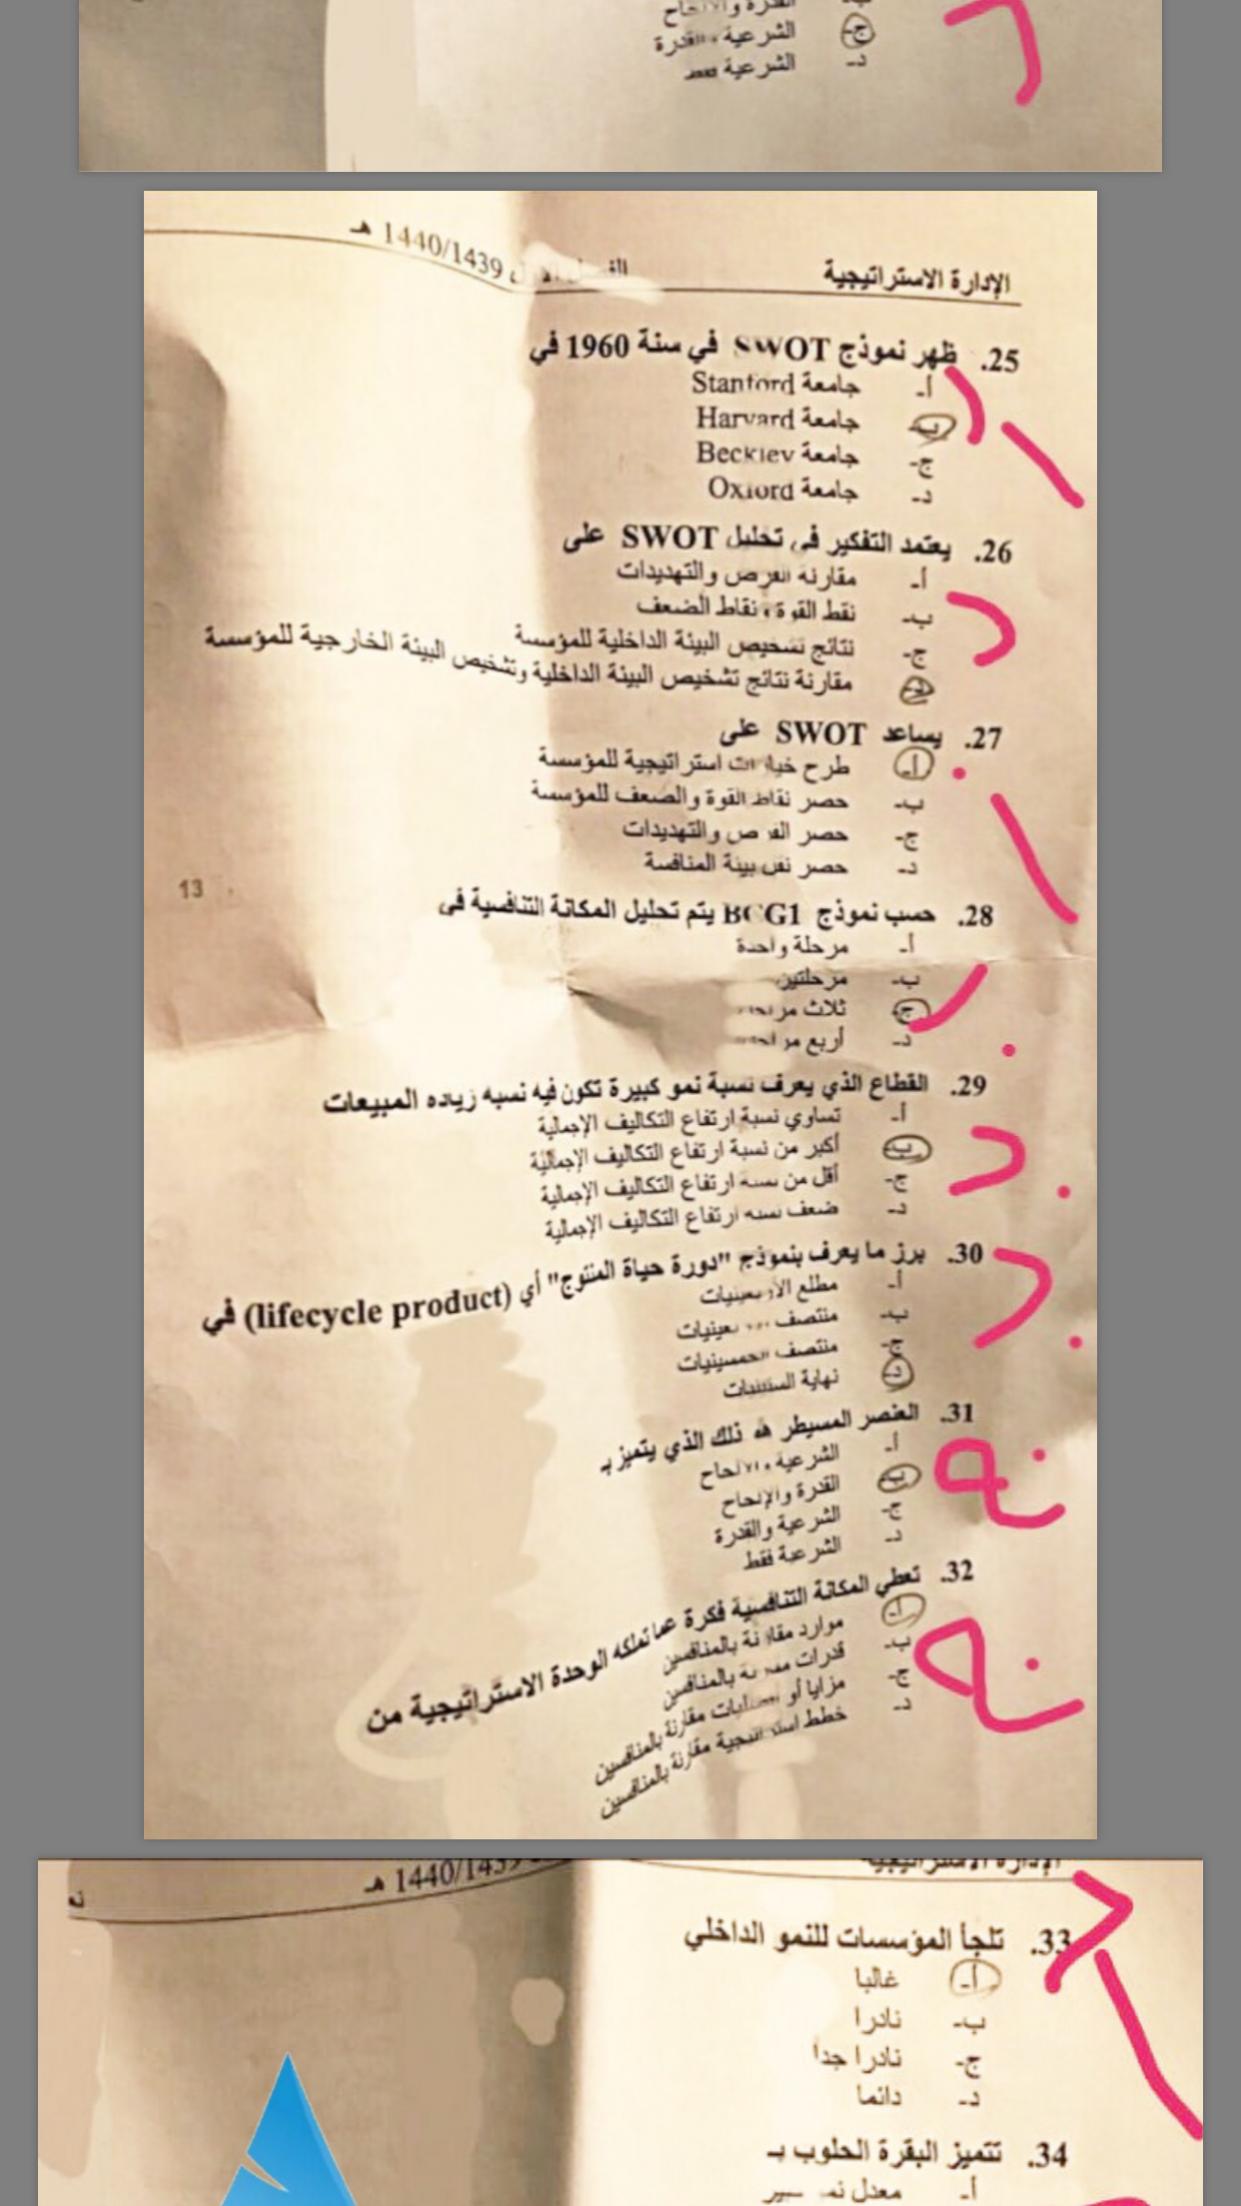 ج- الشرعية والقدرة
د- الشرعية فقط
الإدارة الاستراتيجية
1440/1439 هـ
25. ظهر نموذج SWOT في سنة 1960 في
أ- جامعة Stanford
ب- جامعة Harvard
ج- جامعة Beckley
د- جامعة Oxford
26. يعتمد التفكير في تحليل SWOT على
أ- مقارنة الفرص والتهديدات
ب- نقط القوة ونقاط الضعف
ج- نتائج تشخيص البيئة الداخلية للمؤسسة
د- مقارنة نتائج تشخيص البيئة الداخلية وتشخيص البيئة الخارجية للمؤسسة
27. يساعد SWOT على
أ- طرح خيارات استراتيجية للمؤسسة
ب- حصر نقاط القوة والضعف للمؤسسة
ج- حصر الفرص والتهديدات
د- حصر بيئة المنافسة
13
28. حسب نموذج BCG1 يتم تحليل المكانة التنافسية في
أ- مرحلة واحدة
ب- مرحلتين
ج- ثلاث مراحل
د- أربع مراحل
29. القطاع الذي يعرف نسبة نمو كبيرة تكون فيه نسبه زياده المبيعات
أ- تساوي نسبة ارتفاع التكاليف الإجمالية
ب- أكبر من نسبة ارتفاع التكاليف الإجمالية
ج- أقل من نسبة ارتفاع التكاليف الإجمالية
د- ضعف نسبه ارتفاع التكاليف الإجمالية
30. برز ما يعرف بنموذج "دورة حياة المنتوج" أي (lifecycle product) في
أ- مطلع الأربعينيات
ب- منتصف
ج- منتصف الخمسينيات
د- نهاية الستينيات
31. العنصر المسيطر هو ذلك الذي يتميز بـ
أ- الشرعية والإلحاح
ب- القدرة والإلحاح
ج- الشرعية والقدرة
د- الشرعية فقط
32. تعطي المكانة التنافسية فكرة عما تملكه الوحدة الاستراتيجية من
أ- موارد مقارنة بالمنافسين
ب- قدرات مقارنة بالمنافسين
ج- مزايا أو مقارنة بالمنافسين
د- خطط استراتيجية مقارنة بالمنافسين
الإدارة الاستراتيجية
1440/1439 هـ
33. تلجأ المؤسسات للنمو الداخلي
أ- غالبا
ب- نادرا
ج- نادرا جدا
د- دائما
34. تتميز البقرة الحلوب بـ
أ- معدل نمو